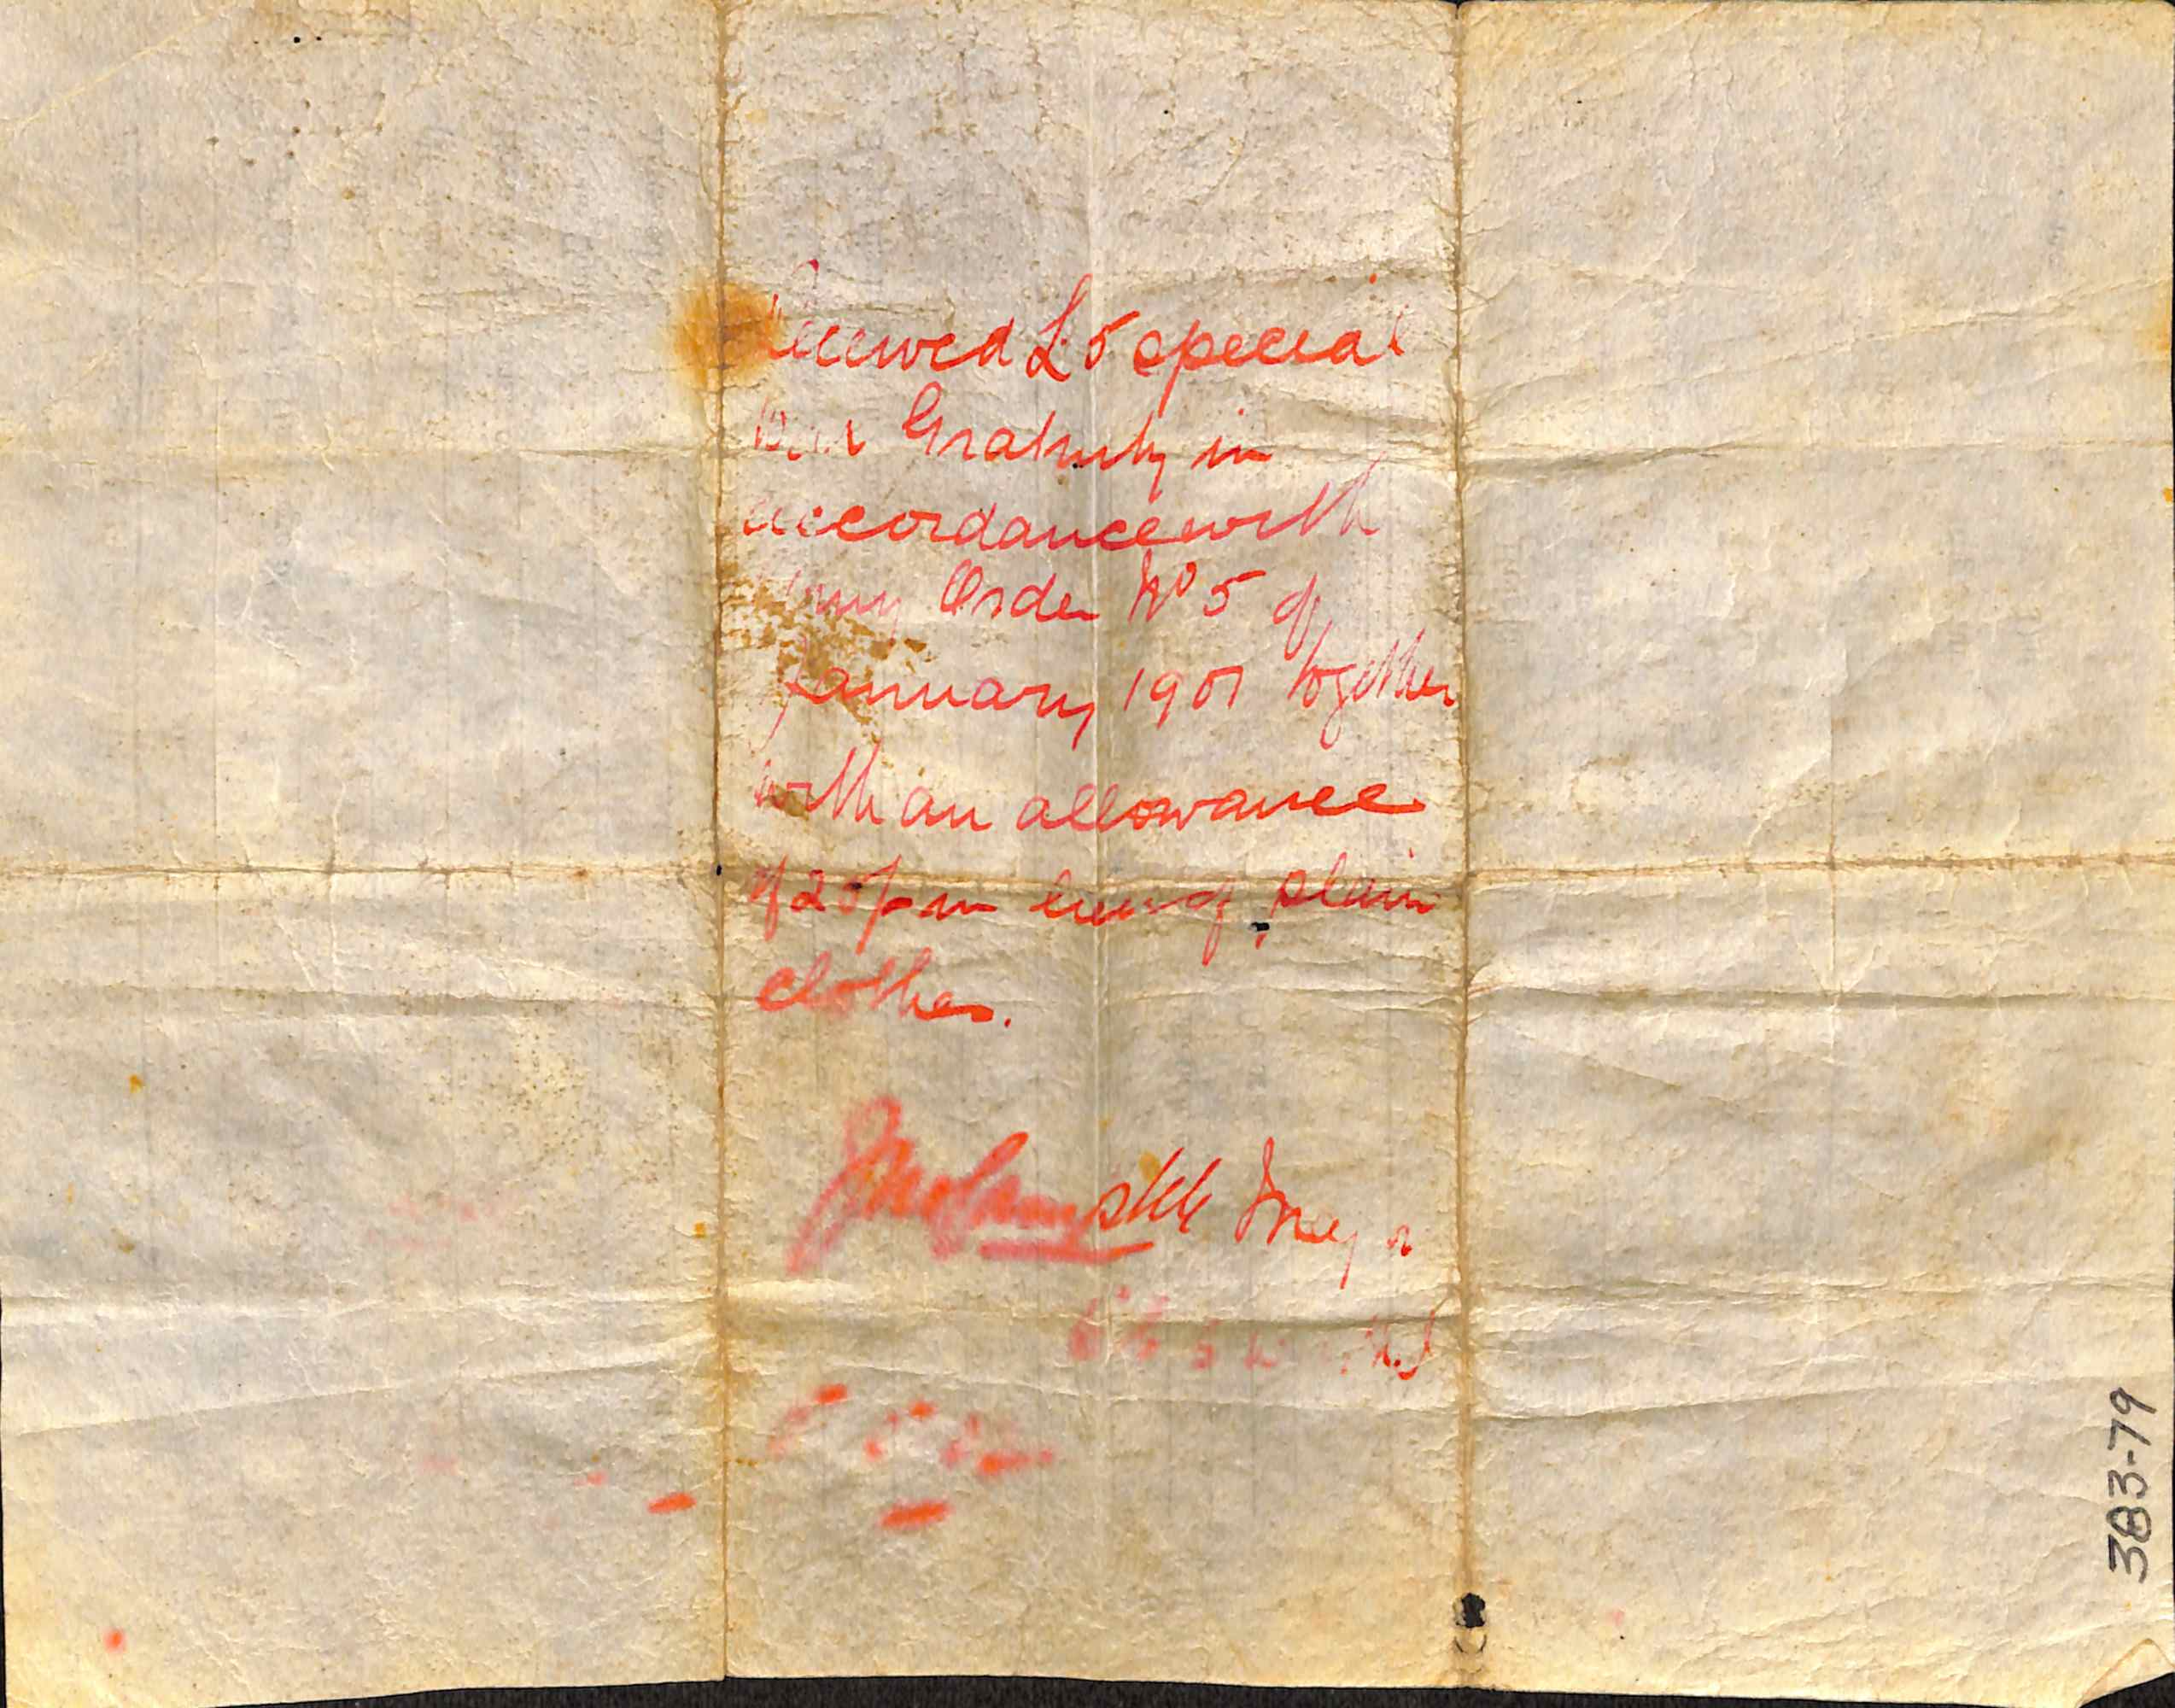 Received £5 special
War Gratuity in
accordance with
Army Order No 5 of
January 1901 together
with an allowance
of 20/- in lieu of plain
clothes.
383-79